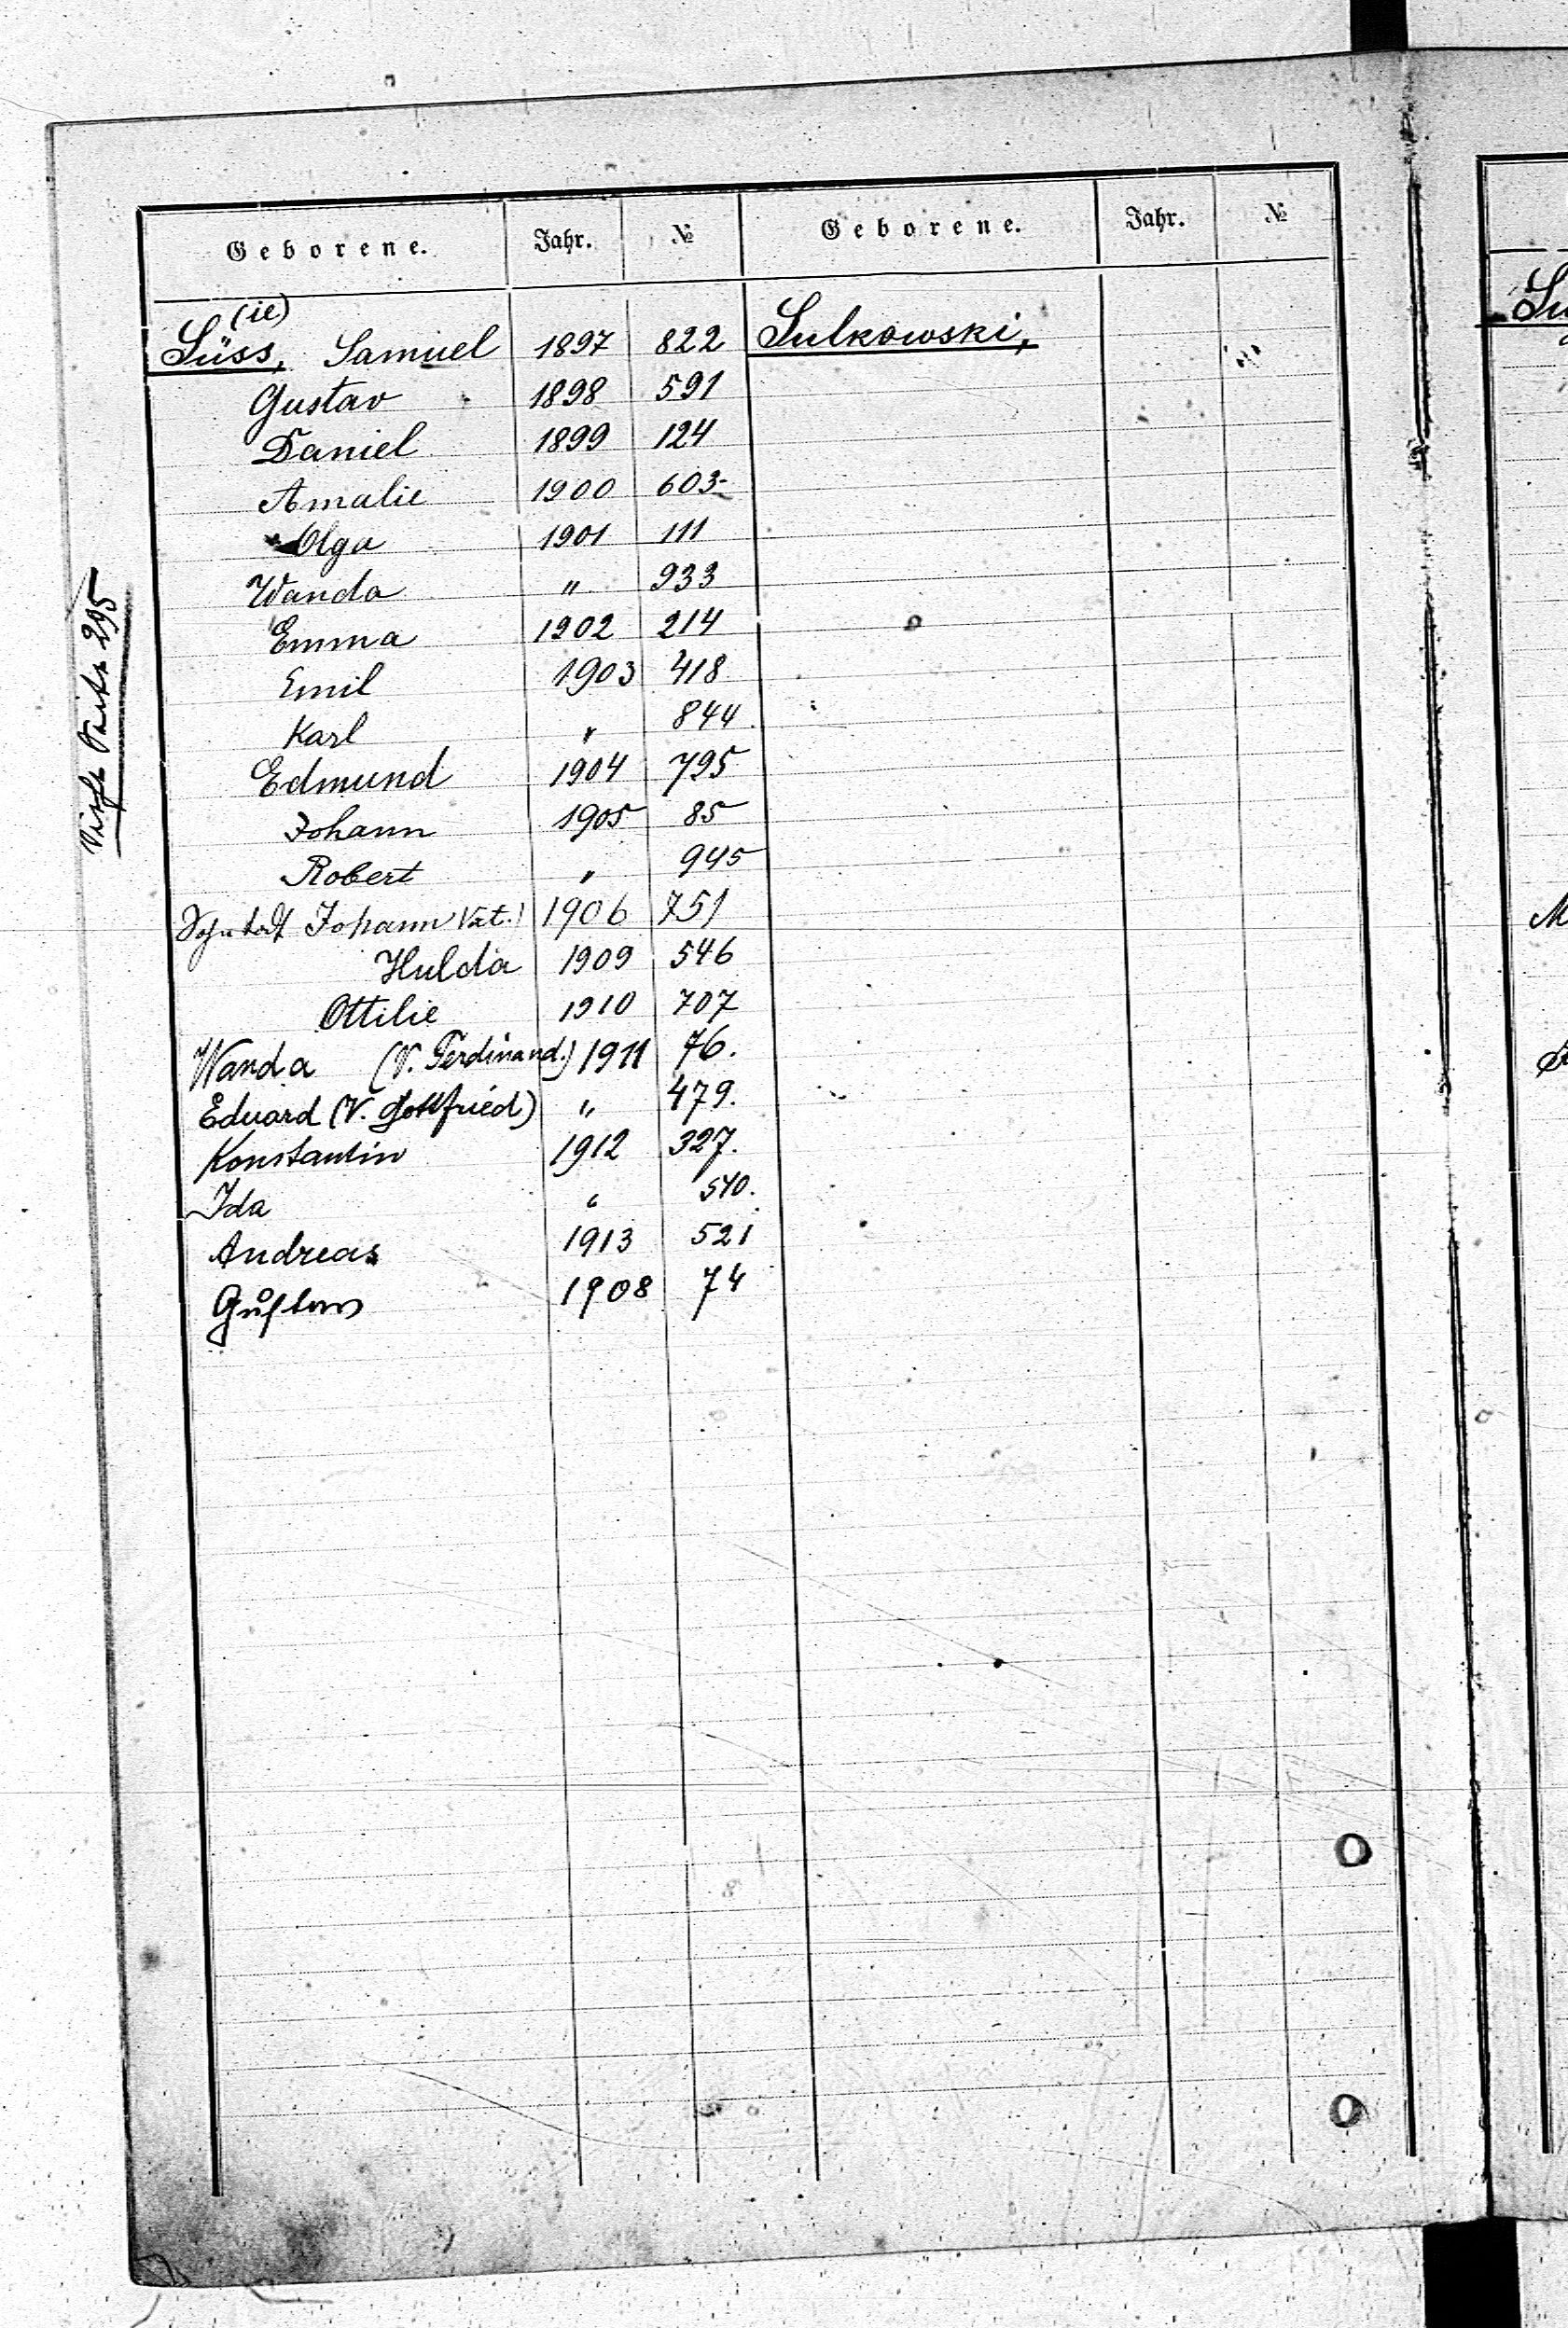 Geborene. Jahr. № Geborene. Jahr. №
(ie)
Süss, Samuel 1897 822 Sulkowski,
Gustav 1898 591
Daniel 1899 124
Amalie 1900 603
Olga 1901 111
Wanda " 933
Emma 1902 214
Emil 1903 418
Karl " 844
Edmund 1904 795
Johann 1905 85
Robert " 945
Johann 1906 751
Hulda 1909 546
Ottilie 1910 707
Wanda (V. Ferdinand.) 1911 76.
Eduard (V. Gottfried) " 479.
Konstantin 1912 327.
Ida " 540.
Andreas 1913 521
Gustav 1908 74
Siehe Seite 295